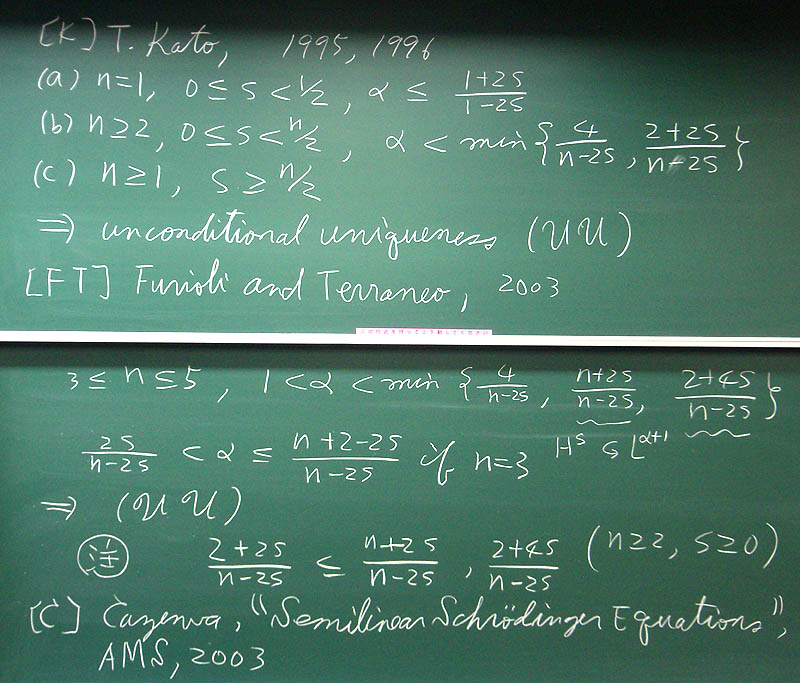 [K] T. Kato, 1995, 1996
(a) n=1, 0 ≤ s < 1/2, α ≤ (1+2s)/(1-2s)
(b) n≥2, 0≤s<n/2, α < min{4/(n-2s), (2+2s)/(n-2s)}
(c) n≥1, s ≥ n/2
⇒ unconditional uniqueness (UU)
[FT] Furioli and Terraneo, 2003
3≤n≤5, 1<α<min{4/(n-2s), (n+2s)/(n-2s), (2+4s)/(n-2s)}
2s/(n-2s) < α ≤ (n+2-2s)/(n-2s) if n=3 H^s ⊊ L^{α+1}
⇒ (UU)
注 (2+2s)/(n-2s) ≤ (n+2s)/(n-2s), (2+4s)/(n-2s) (n≥2, s≥0)
[C] Cazenva, "Semilinear Schrödinger Equations",
AMS, 2003